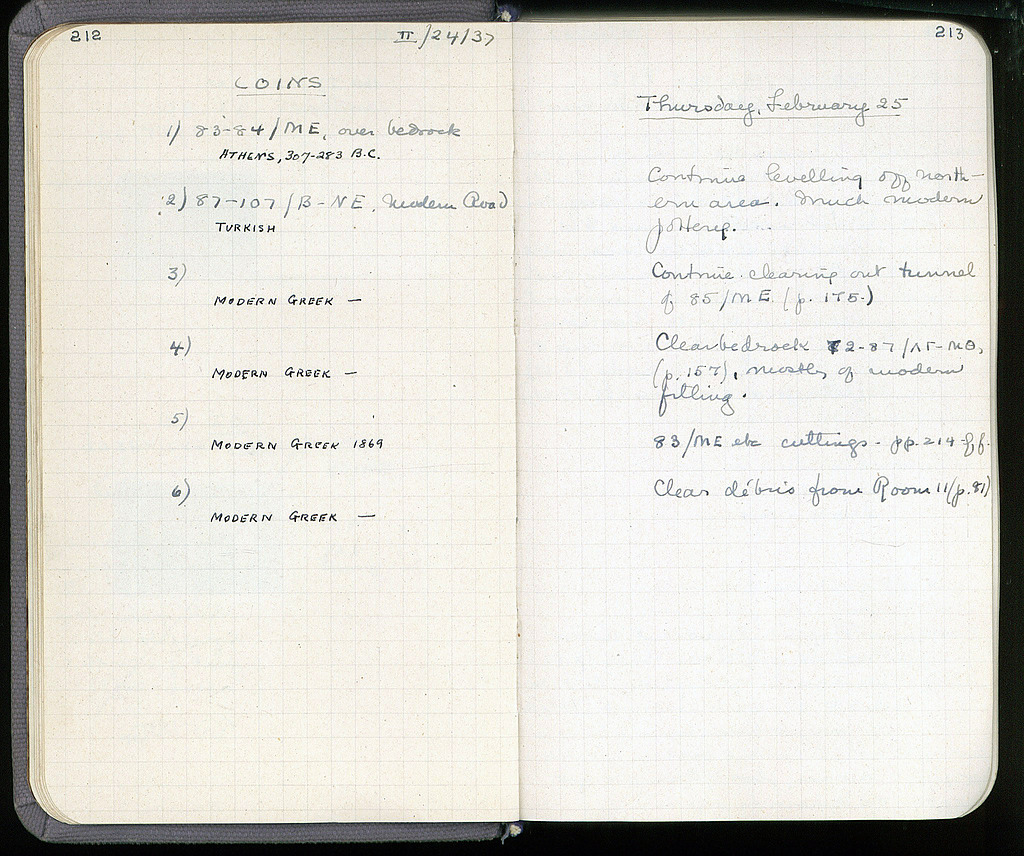 212
II/24/37
COINS
1) 83-84/ME, over bedrock
ATHENS, 307-283 B.C.
2) 87-107/B-NE, Modern Road
TURKISH
3)
MODERN GREEK —
4)
MODERN GREEK —
5)
MODERN GREEK 1869
6)
MODERN GREEK —
213
Thursday, February 25
Continue levelling off north-
ern area. Much modern
pottery.
Continue clearing out tunnel
of 85/ME (p. 175.)
Clear bedrock 72-87/
(p. 157), mostly of modern
filling.
83/ME etc cuttings - pp. 214 ff.
Clear débris from Room 11 (p. 81)